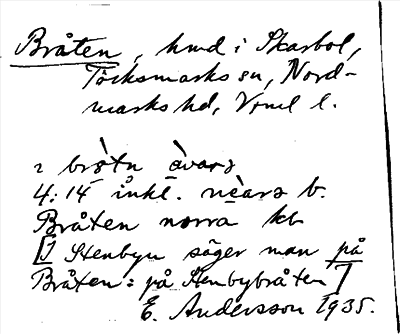 Bråten, hmd i Skarbol,
Töcksmarks sn, Nord-
marks hd, Vrml l.
2 bròtn àvarə
4:14 inkl. nèarə b.
Bråten norra kb
[I Stenbyn säger man på
Bråten: på Stenbybråten]
E. Andersson 1935.